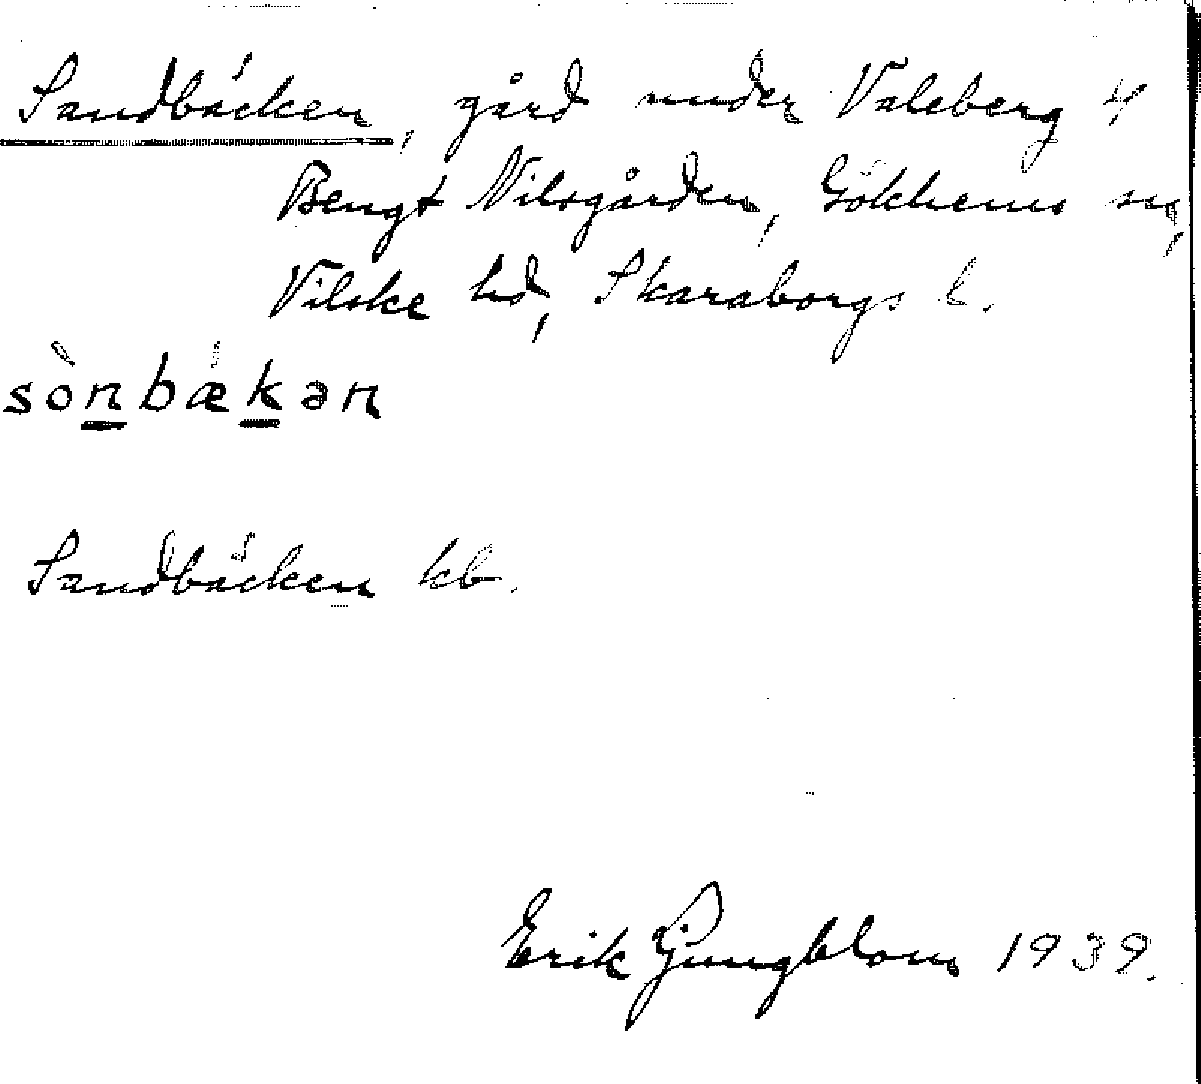 Sandbäcken, gård under Valeberg 4
Bengt Nilsgården, Gökhems sn,
Vilske hd, Skaraborgs l.
sònbækən
Sandbäcken kb.
Erik Ljungblom 1939.